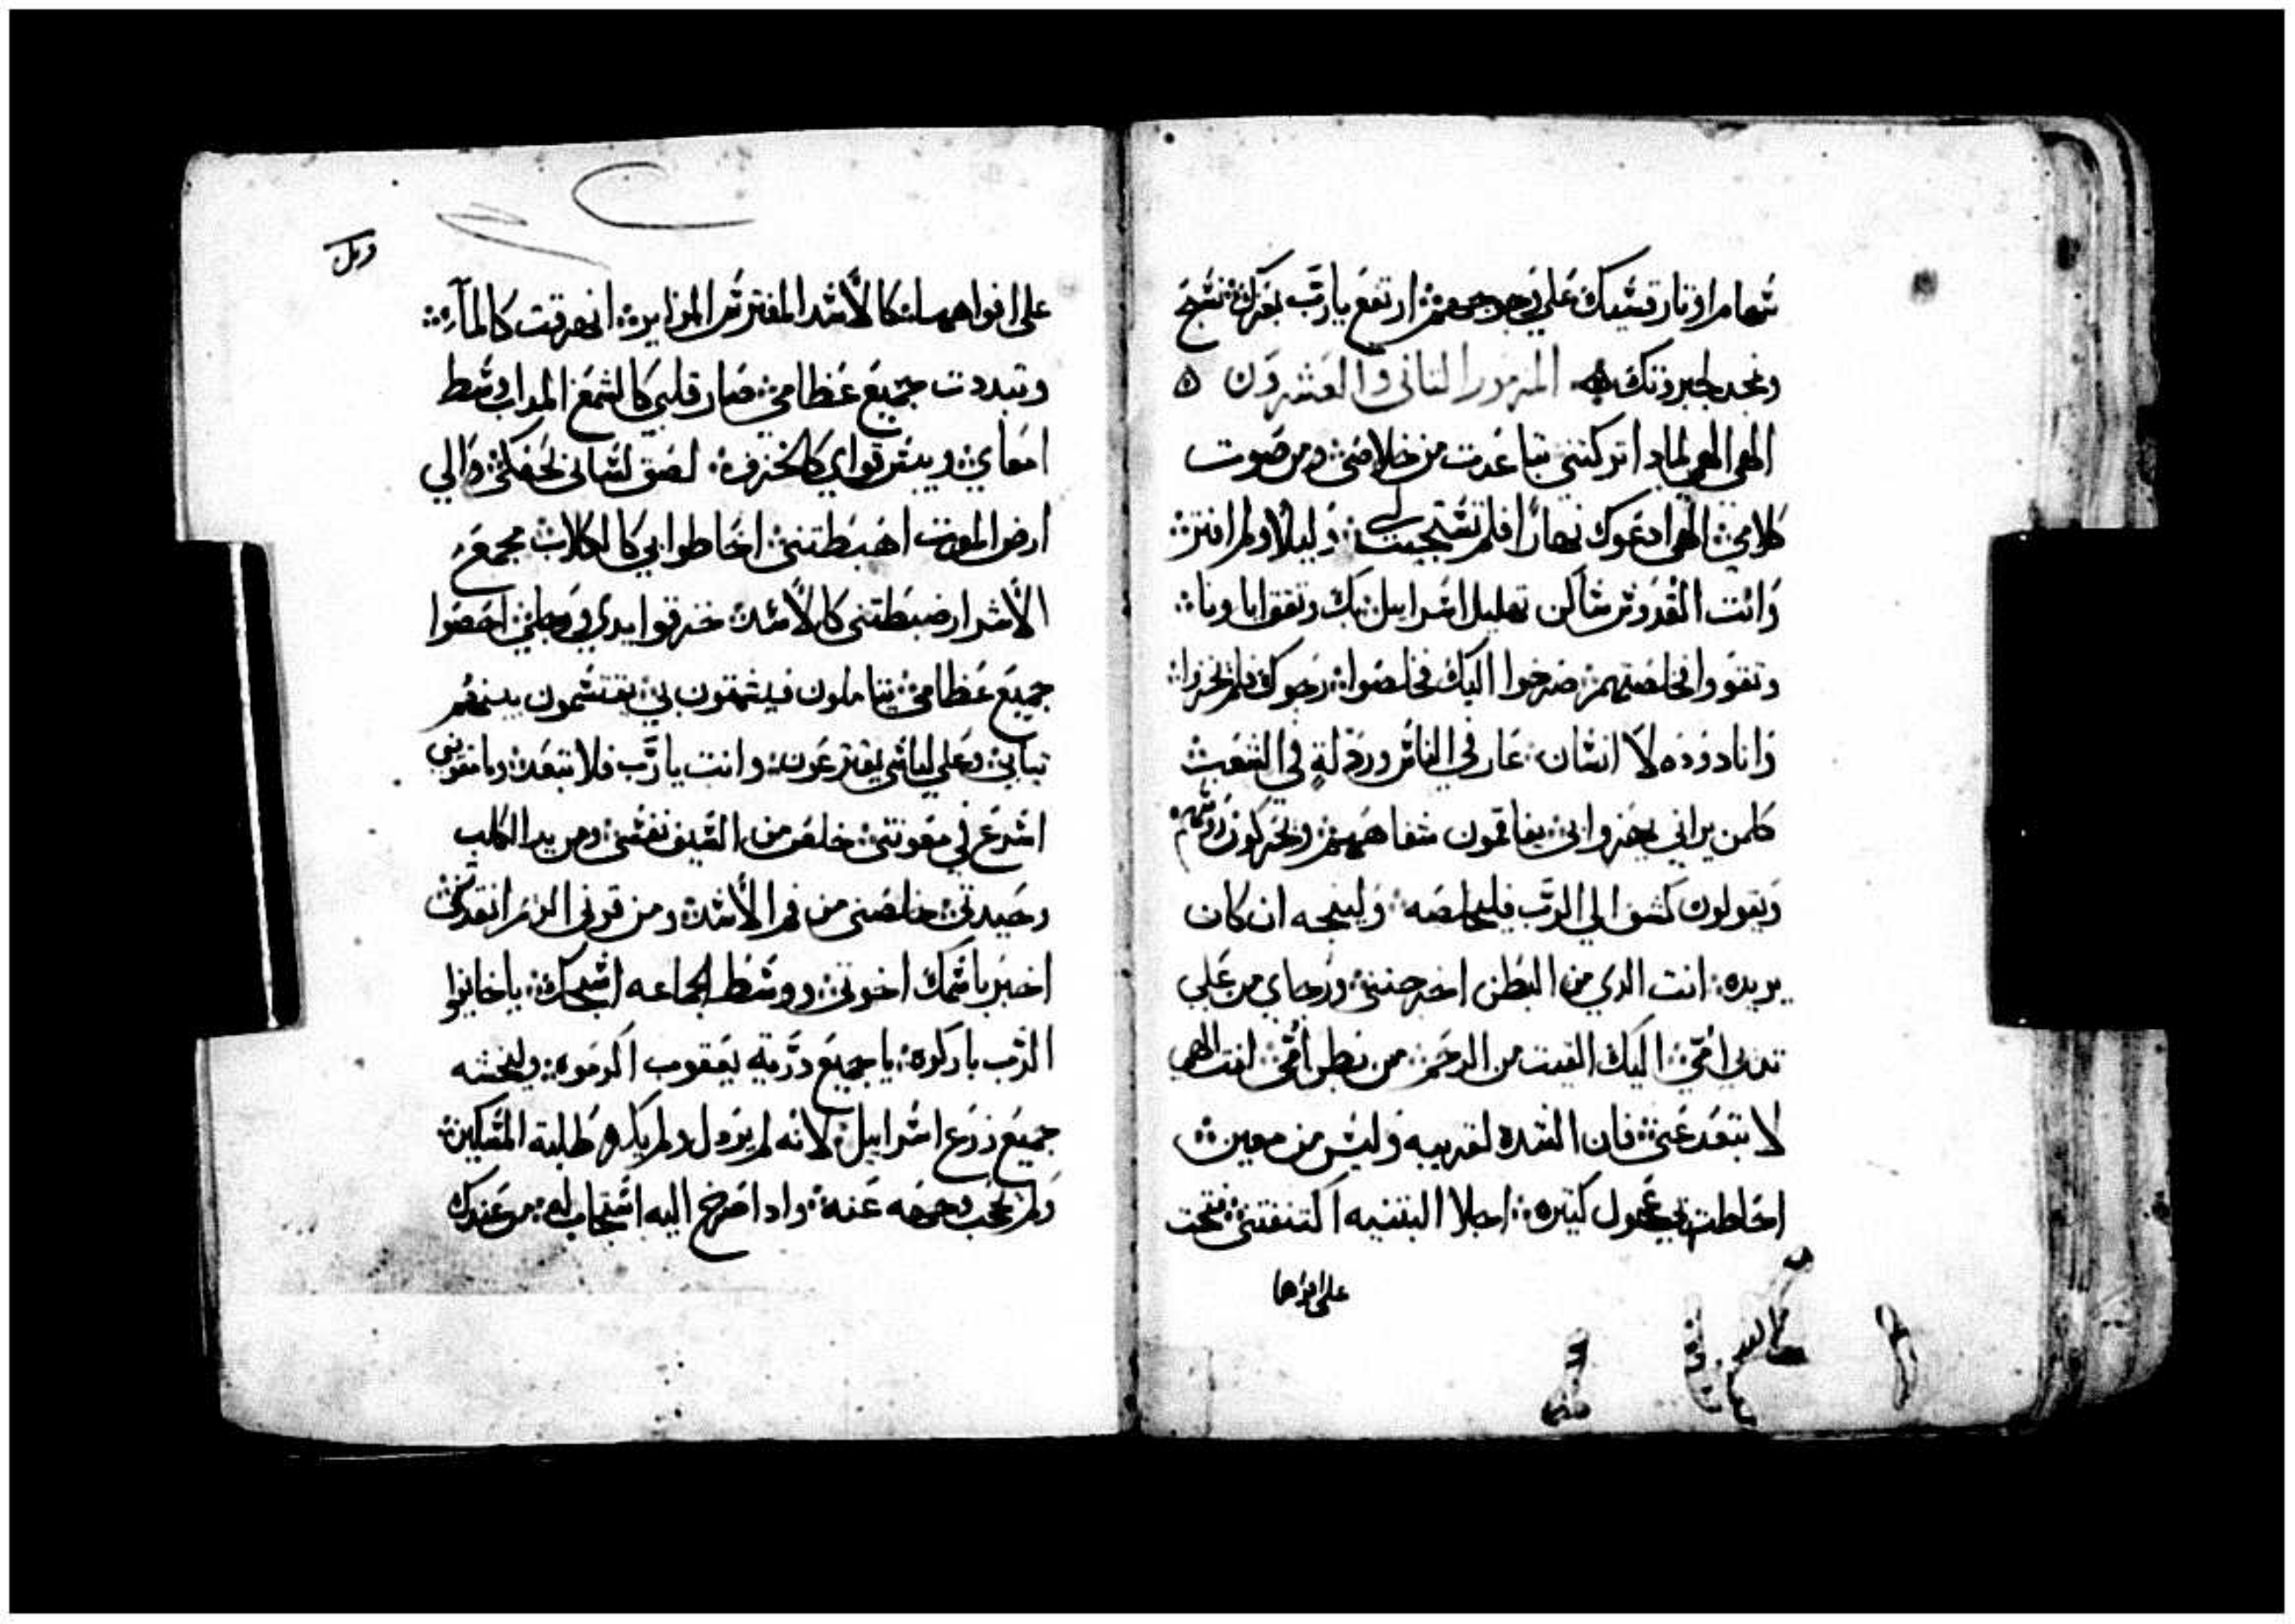 سهام اوتار قسيك على وجوههم ارتفع يارب بعزتك نسبح
ونمجد لجبروتك المزمور الثاني والعشرون
الهي الهي لمادا تركتني تباعدت من خلاصي ومن صوت
كلامي الهي ادعوك نهارًا فلم تستجيب لي وليلًا ولم افتر
وانت القدوس ساكن تهليل اسراييل بك وثقو اباونا
وثقووا فخلصتهم صرخوا اليك فخلصوا رجوك فلم يخزوا
وانا دوده لا انسان عار في الناس وردلةٍ في الشعب
كلمن يراني يهزوا بي يفاقمون شفاههم ويحركون روسهم
ويقولون لشق الي الرب فليخلصه ولينجه ان كان
يريده انت الدي من البطن اخرجتني ورجاي من علي
تديي امّي اليك القيت من الرحم من بطن امّي انت الهي
لا تبعد عني فان الشده لقريبه وليس من معين
احاطت بي عجول كتيره اجلا البتنيه اكتنفتني فتحت
على افواها
وىل
على افواههم لي كالأسد المفترس المزاير انهرقت كالمآء
وتبددت جميع عظامي صار قلبي كالشمع المداب وسط
امعاي ويبس قواي كالخزف لصق لساني بحنكي والي
ارض الموت اهبطتني احاطوا بي كالكلاب مجمع
الأشرار ضبطتني كالأسد خرقوا يدي ورجلي احصوا
جميع عظامي يتاملون فيشمتون بي يقتسمون بينهم
تيابي وعلي لباسي يقترعون وانت يارب فلا تبعد ويا مقوتي
اسرع في معونتي خلص من السيف نفسي ومن يد الكلب
وحيدتي خلصني من فم الأسد ومن قرون الريم انقدني
اخبر باسمك اخوتي ووسط الجماعه اسبحك ياخايفوا
الرب باركوه ياجميع دريّة يعقوب اكرموه وليخشه
جميع زرع اسراييل لانه لم يزدل ولم يكره طلبة المسكين
ولم يحجب وجهه عنه وادا صرخ اليه استجاب له من عندك